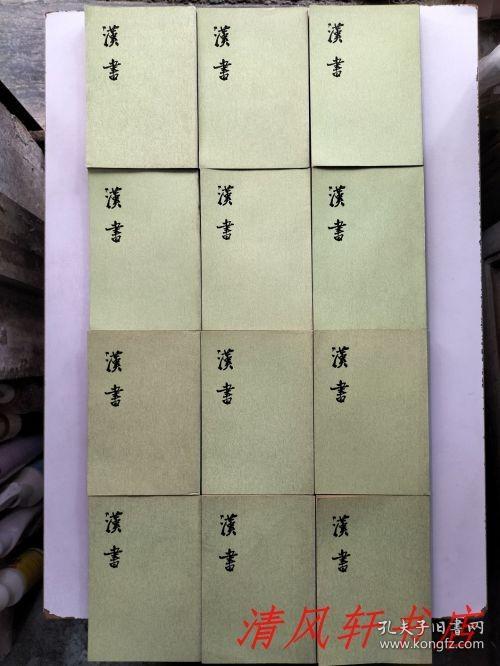 漢書
漢書
漢書
漢書
漢書
漢書
漢書
漢書
漢書
漢書
漢書
漢書
清风轩书店
孔夫子旧书网
www.kongfz.com